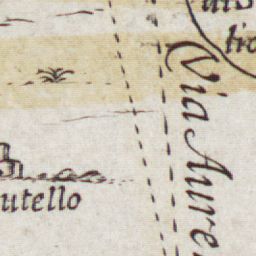 Via Aure
utello